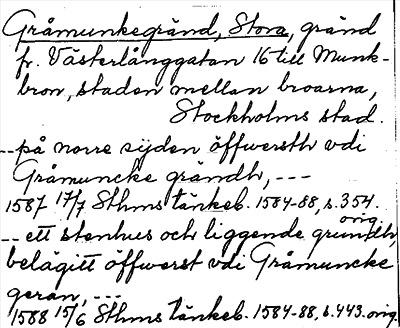 Gråmunkegränd, Stora, gränd
fr. Västerlånggatan 16 till Munk-
bron, staden mellan broarna,
Stockholms stad.
--på norre sijden öffwersth vdi
Gråmuncke grändh, ---
1587 17/7 Sthms tänkeb. 1584-88, s. 354.
orig.
-- ett stenhus och liggende grundh,
belägitt öffwerst vdi Gråmuncke
geran, ---
1588 15/6 Sthms tänkeb. 1584-88, s. 443. orig.